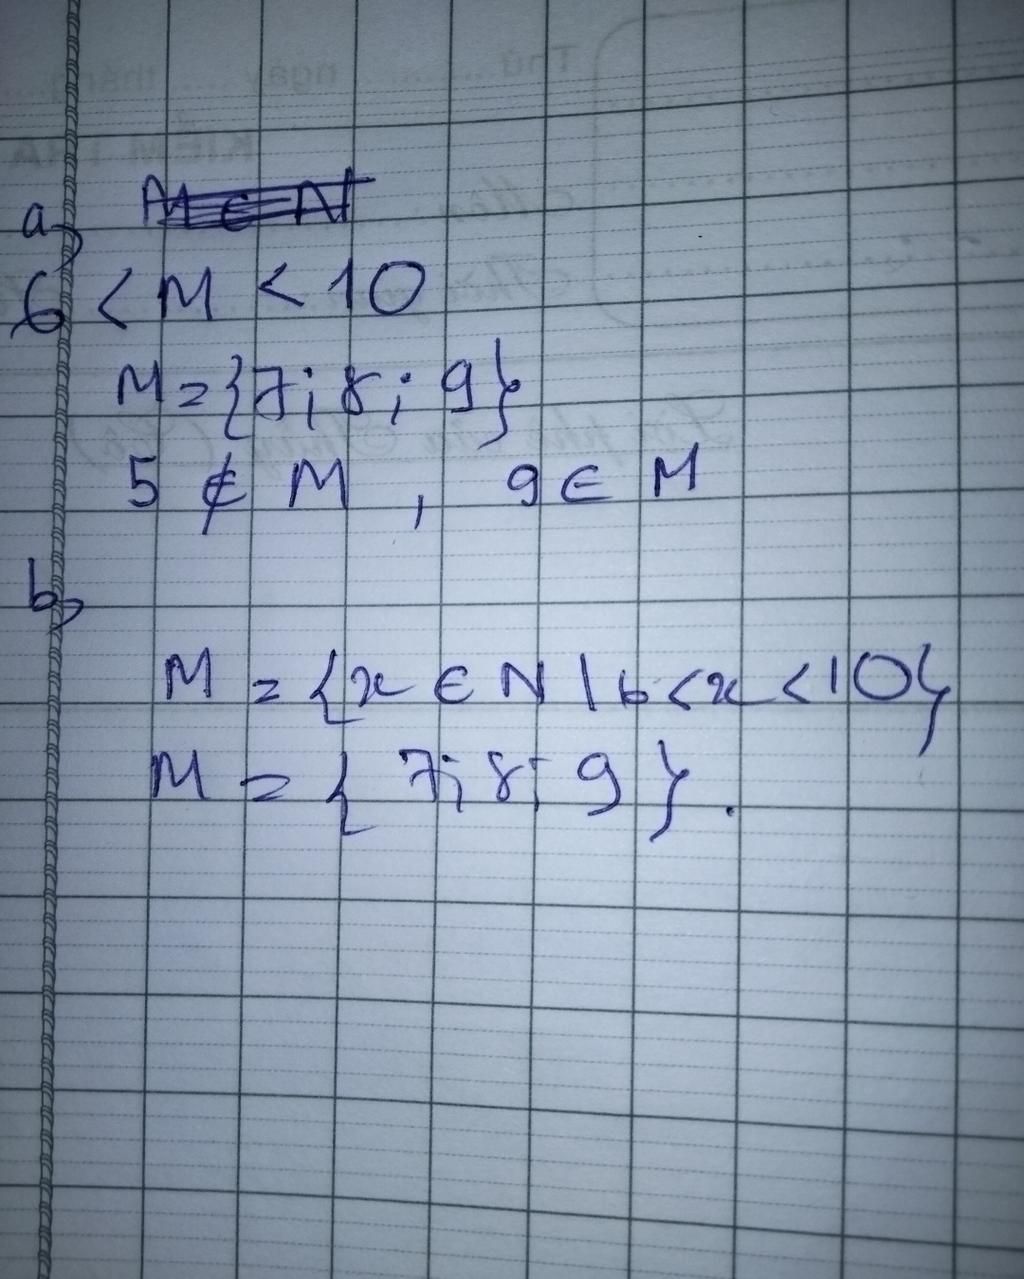 a,
6 < M < 10
M = {7; 8; 9}
5 ∉ M , 9 ∈ M
b,
M = {x ∈ N | 6 < x < 10}
M = { 7; 8; 9 }.